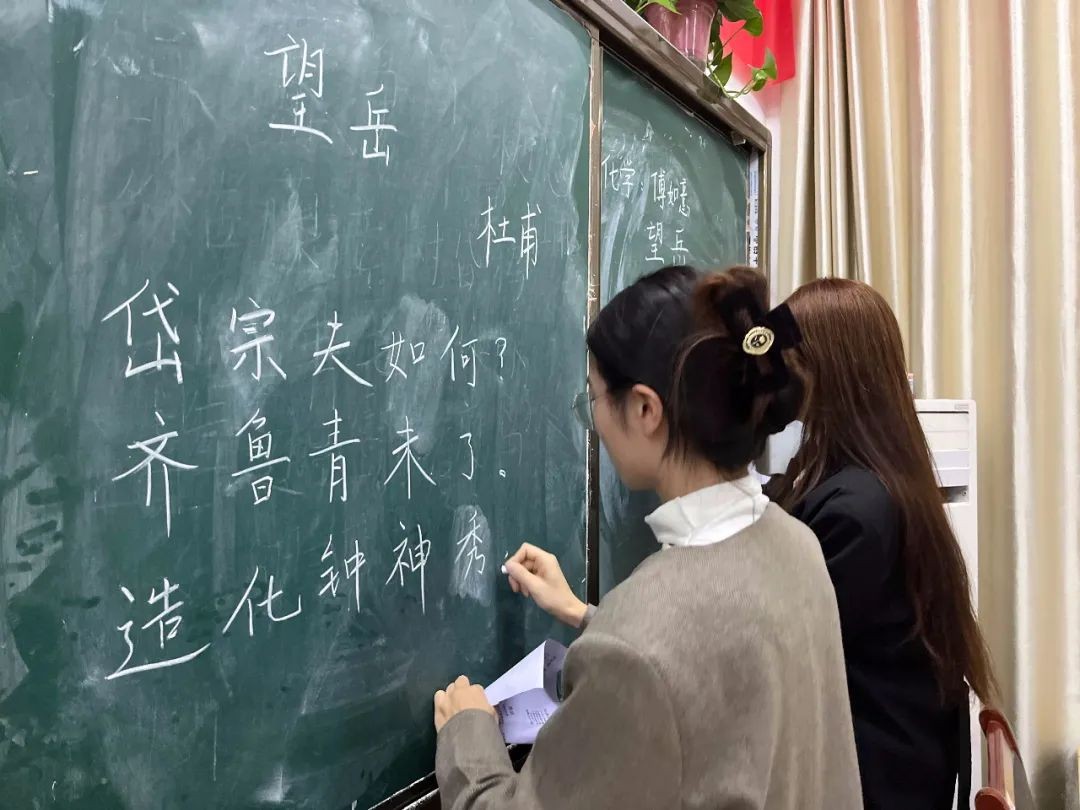 望岳
杜甫
岱宗夫如何?
齐鲁青未了。
造化钟神秀,
化字:傅如意
望岳